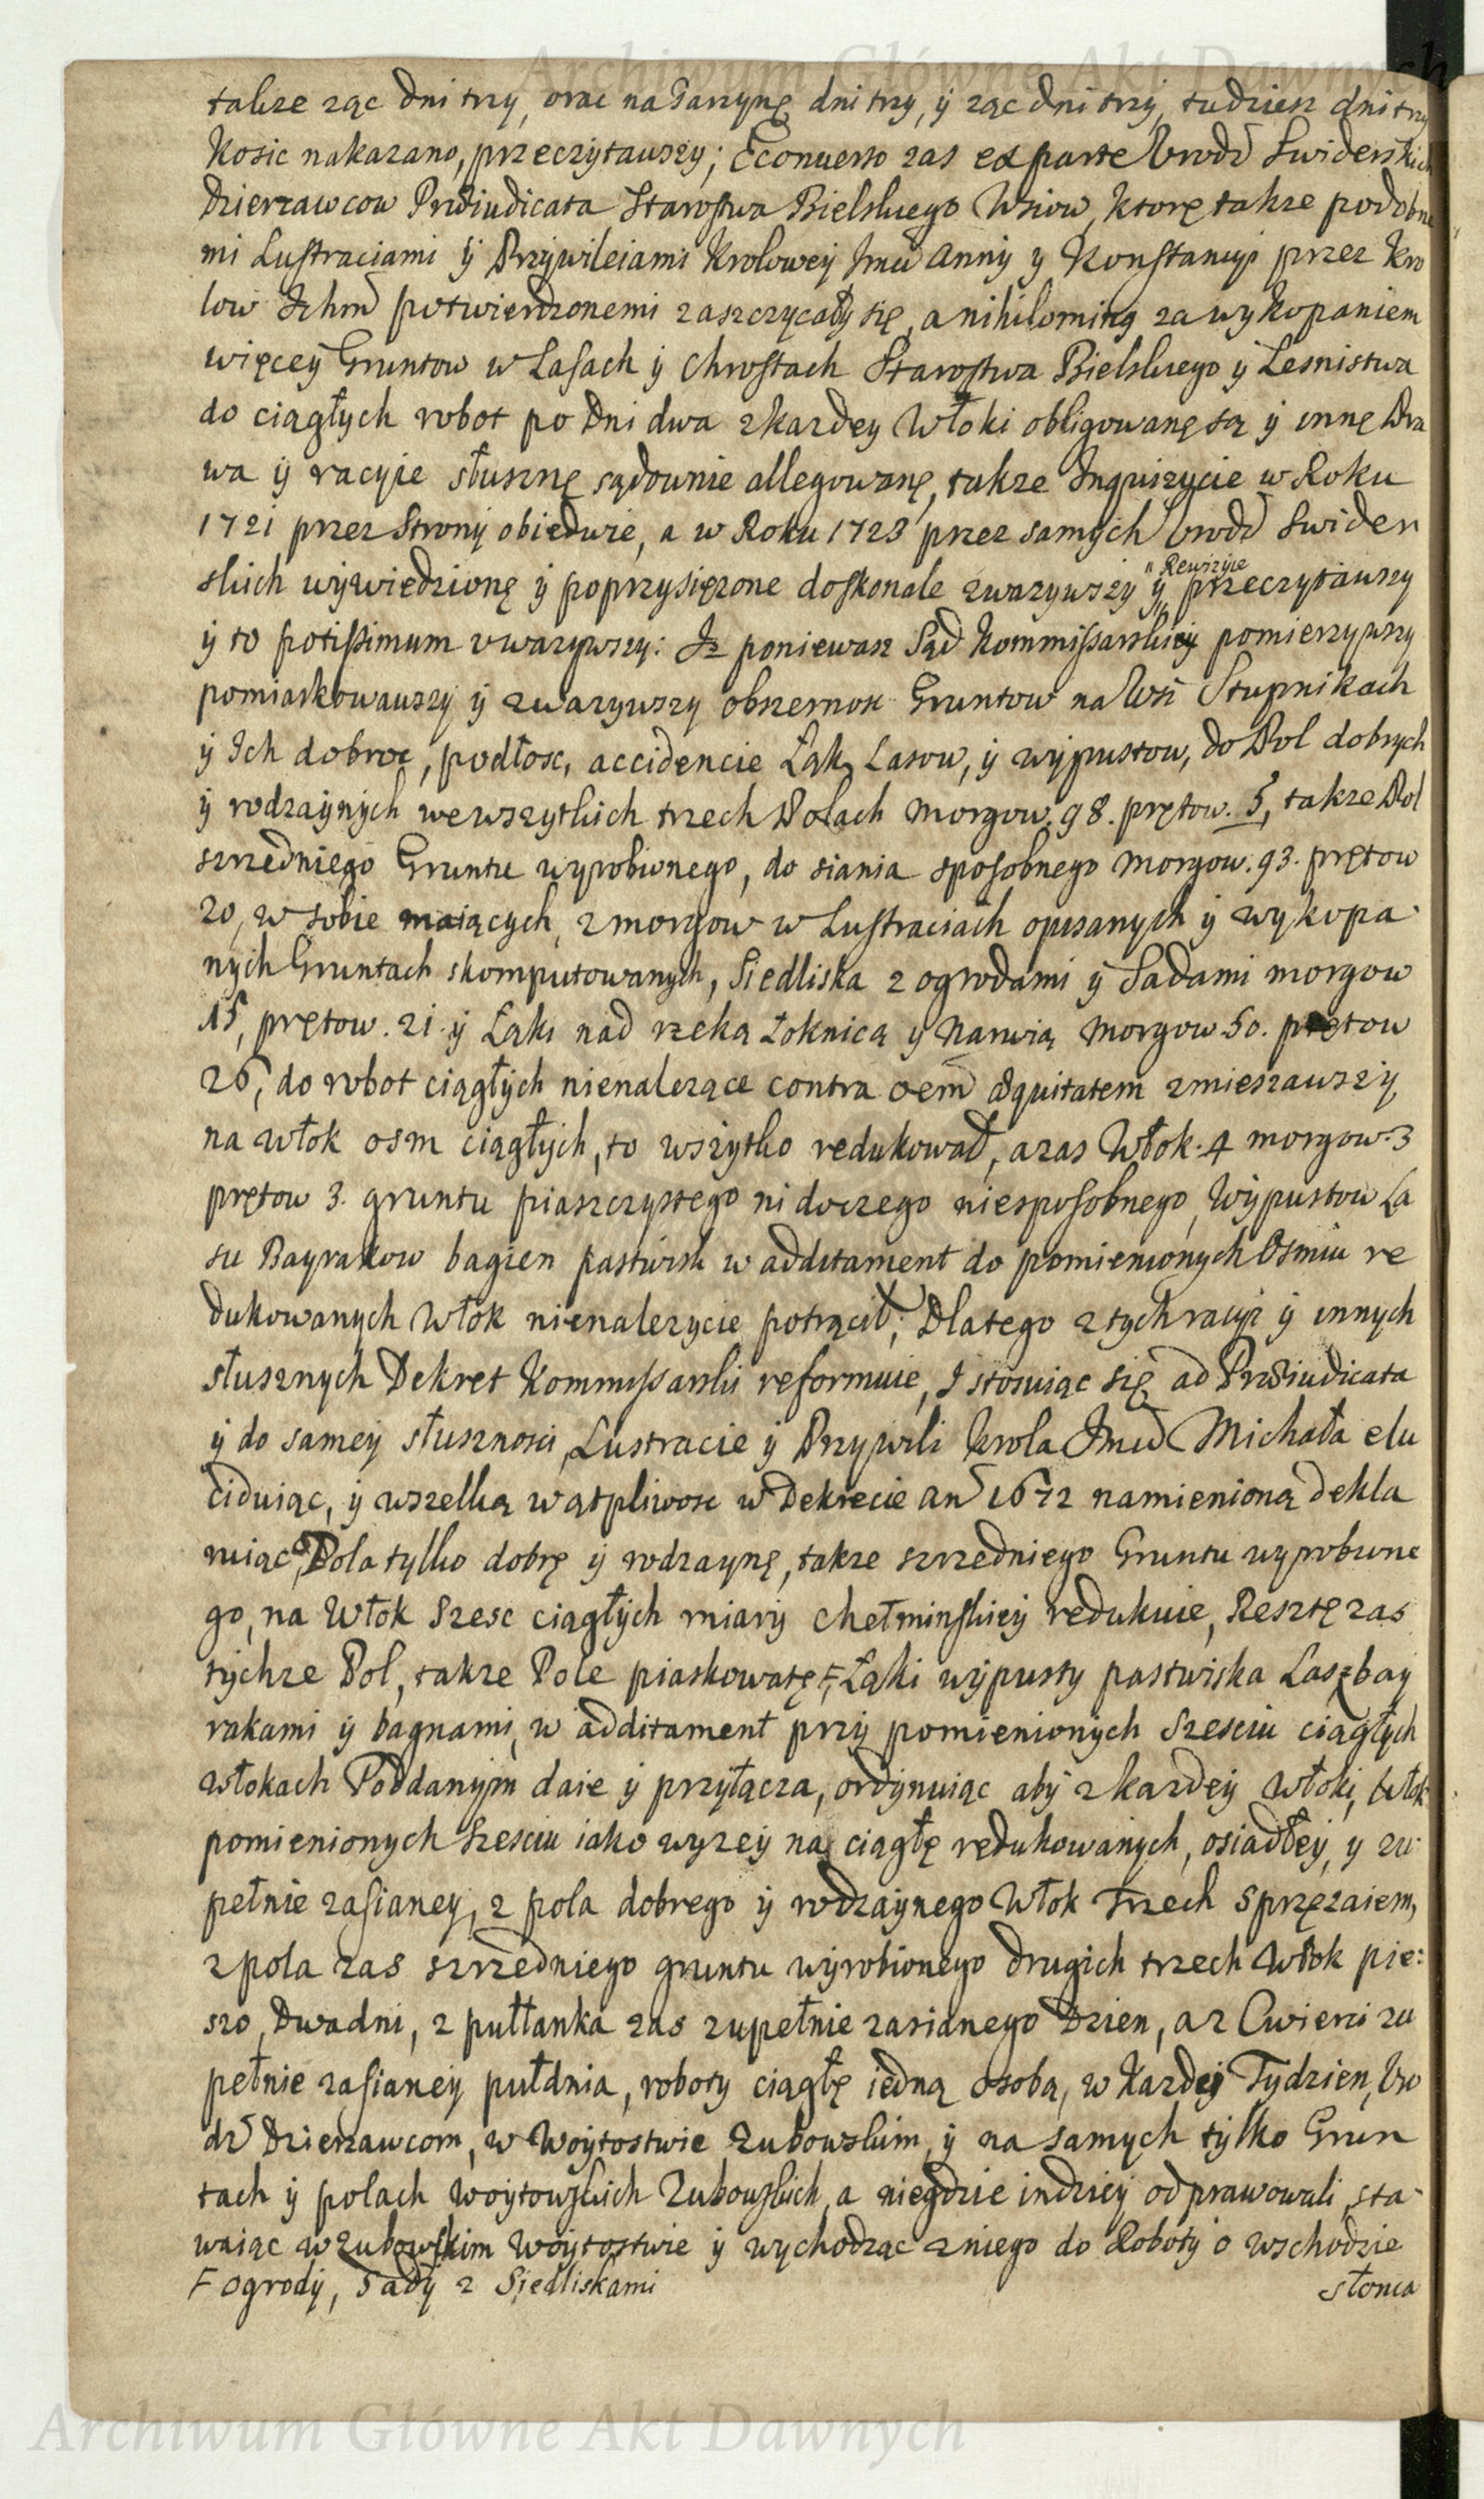 Archiwum Główne Akt Dawnych
takze ząc dni trzy, orac na Jarzynę dni trzy, ÿ ząc dni trzÿ, tudziesz dni trzy
Kosic nakazano, przeczÿtawszÿ; Econuerso zas ex parte Urodź Swiderskich
Dzierzawcow Præiudicata Starostwa Bielskiego Wsiow, ktorę takze podobne
mi Lustraciami ÿ Przÿwileiami Krolowey Jmći Annÿ y Konstancÿi przez Kro
low Ichm̃ potwierdzonemi zaszczÿcałÿ się, a nihilominq za wykopaniem
więceÿ Gruntow w Lasach ÿ Chrostach Starostwa Bielskiego ÿ Lesnistwa
do ciągłych robot po dni dwa z kazdey Włoki obligowanę są ÿ innę Pra
wa ÿ racÿie słusznę sądownie allegowanę, takze Inquizÿcie w Roku
1721 przez Stronÿ obiedwie, a w Roku 1723 przez samÿch Urodź Swider
skich wÿwiedzionę ÿ poprzysięzone doskonale zwazywszÿ ÿ przeczytawszy
Rewizÿie
ÿ to potissimum vwazywszy: Iz poniewasz Sąd Kommissarskieÿ pomierzywszy
pomiarkowawszy ÿ zwazywszy obszernosc Gruntow na Wsi Stupnikach
ÿ Ich dobroc, podłosc, accidencie Łąk, Lasow, ÿ wÿpustow, do Pol dobrych
ÿ rodzaÿnÿch we wszytkich trzech Polach morgow. 98. prętow. 5, takze Pol
szrzedniego Gruntu wyrobionego, do siania sposobnego morgow. 93. prętow
20, w sobie maiących, z morgow w Lustraciach opisanych ÿ wykopa
nych Gruntach skomputowanych, Siedliska z ogrodami ÿ Sadami morgow
15, prętow. 21. ÿ Łąki nad rzeką Łoknicą y Narwią morgow 50. prętow
26, do robot ciągłÿch nienalezące contra oem̃ æquitatem zmieszawszÿ
na włok osm ciągłÿch, to wszÿtko redukował, a zas Włok. 4 morgow. 3
prętow 3. gruntu piaszczystego ni doczego niesposobnego, Wÿpustow La
su Bayrakow bagien pastwisk w additament do pomienionych Osmiu re
dukowanych Włok nienalezycie potrącił; Dlatego z tych racyi ÿ innych
słusznych Dekret Kommissarski reformuie, I stosuiąc się ad Præiudicata
ÿ do samey słusznosci, Lustracie ÿ Przywili Krola Jmći Michała elu
ciduiąc, ÿ wszelką wątpliwosc w Dekrecie an̄ 1672 namienioną dekla
ruiąc, Pola tylko dobrę ÿ rodzaynę, takze szrzedniego Gruntu wyrobione
go, na Włok Szesc ciągłÿch miarÿ chełminskieÿ redukuie, Resztę zas
tÿchze Pol, takze Pole piaskowatę F, Łąki wÿpusty pastwiska Las z bay
rakami ÿ bagnami, w additament przÿ pomienionych Szesciu ciągłych
włokach Poddanÿm daie ÿ przÿłącza, ordÿnuiąc abÿ z kazdeÿ Włoki, Włok
pomienionych Szesciu iako wyzeÿ na ciągłę redukowanych, osiadłeÿ, y zu
pełnie zasianey, z pola dobrego ÿ rodzaÿnego Włok Trzech Sprzęzaiem,
z pola zas szrzedniego gruntu wÿrobionego drugich trzech Włok pie:
szo, Dwa dni, z pułłanka zas zupełnie zasianego Dzien, a z Cwierci zu
pełnie zasianeÿ pułdnia, robotÿ ciągłę iedną osobą, w Kazdeÿ Tydzien, Uro
dź Dzierzawcom, w Woÿtostwie Zubowskim, ÿ na samych tÿlko Grun
tach ÿ polach woÿtowskich Zubowskich, a niegdzie indzieÿ odprawowali, sta
waiąc w Zubowskim Woÿtostwie ÿ wychodząc z niego do Robotÿ o wschodzie
F ogrodÿ, Sadÿ z Siedliskami
słonca
Archiwum Główne Akt Dawnych